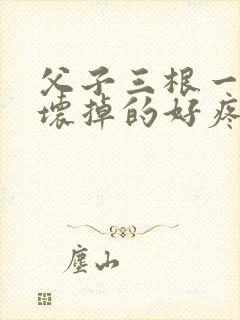 父子三根一
壞掉的好疼
塵山